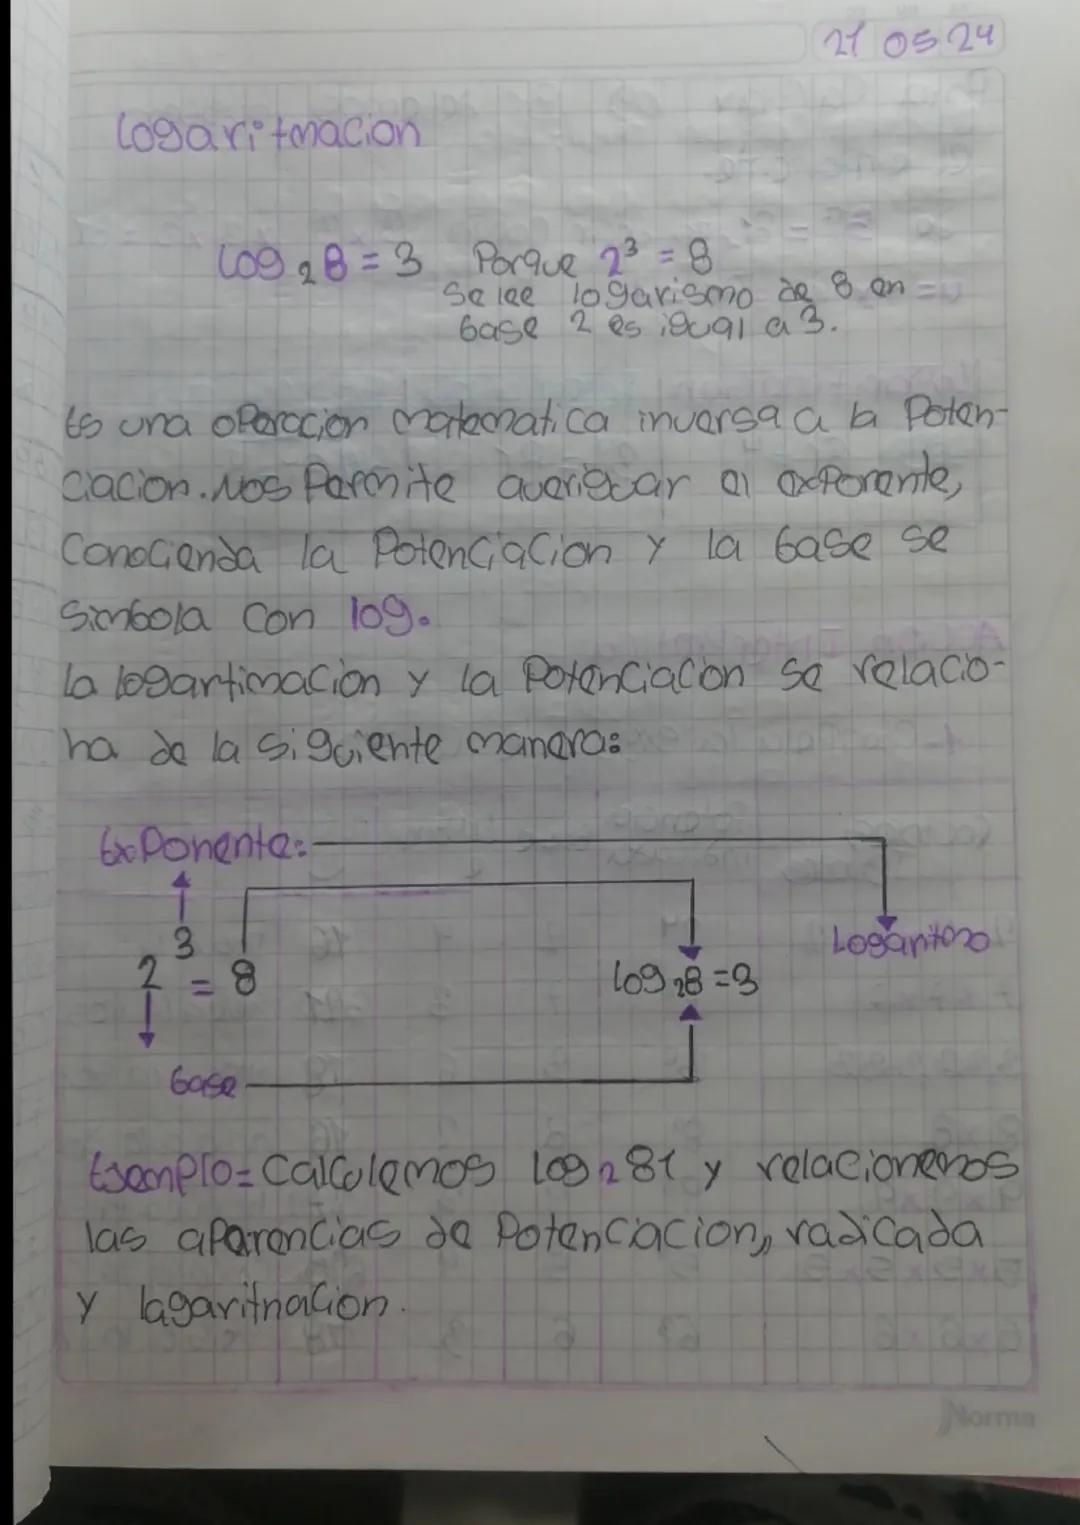 21 05 24
Logaritmacion
log₂8 = 3 Porque 2³ = 8
Se lee logarismo de 8 en
base 2 es igual a 3.
Es una operacion matematica inversa a la Poten-
ciacion. Nos Permite averiguar el exponente,
Conocienda la Potenciacion y la base se
Simbola con log.
la logartimacion y la Potenciacon se relacio-
na de la siguiente manera:
Exponente:
2³ = 8
log₂8=3
Logaritmo
base
Ejemplo= Calculemos log₂81 y relacionemos
las aparencias de Potenciacion, radicada
y lagaritnacion.
Norma